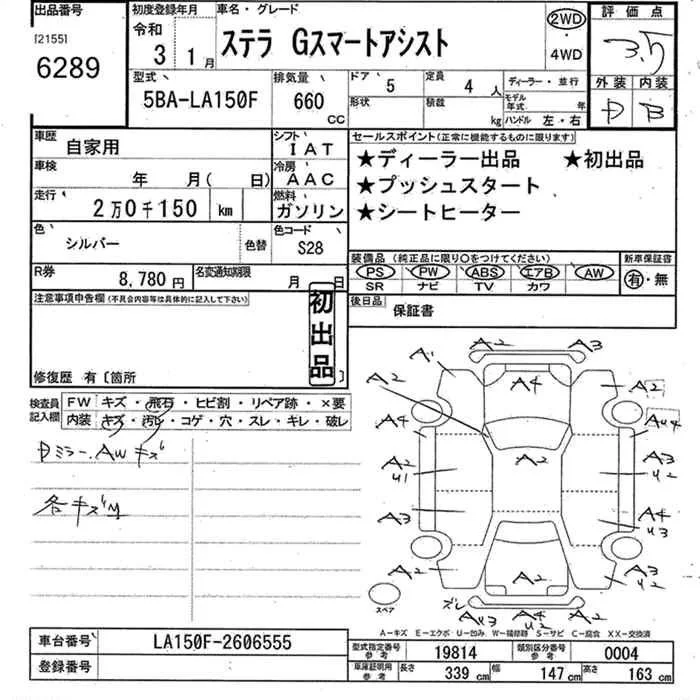 出品番号
[2155]
6289
初度登録年月
令和
3 1月
車名・グレード
ステラ Gスマートアシスト
2WD
・
4WD
評価点
3.5
外装 内装
D B
型式
5BA-LA150F
排気量
660
CC
ドア 5
形状
定員 4 人
積載 kg
ディーラー・並行
モデル年式 年
ハンドル 左・右
車歴 自家用
シフト IAT
車検 年 月( 日)
冷房 AAC
走行 2万0千150 km
燃料 ガソリン
色 シルバー 色替
色コード S28
R券 8,780円
名変通知期限 月 日
セールスポイント(正常に機能するものに限ります)
★ディーラー出品 ★初出品
★プッシュスタート
★シートヒーター
装備品 (純正品に限り○をつけてください)
新車保証書
PS PW ABS エアB AW
SR ナビ TV カワ
有・無
後日品 保証書
注意事項申告欄(不具合内容等は具体的に記入して下さい)
初出品
修復歴 有〔箇所 〕
検査員記入欄
FW キズ・飛石・ヒビ割・リペア跡・×要
内装 キズ・汚レ・コゲ・穴・スレ・キレ・破レ
Dミラー、AWキズ
各キズM
A2 A3
A1
A2 A4 A2
A4 A2 AU4
A2 U1
A3 U2
A3
A4 U3
A2 A2 A3 U2
ズレ AU3 A4 U2 A2
スペア
A-キズ E-エクボ U-凹み W-補修跡 S-サビ C-腐食 XX-交換済
車台番号 LA150F-2606555
登録番号
型式指定番号 参考 19814
類別区分番号 参考 0004
車庫証明用 参考 長さ 339 cm 幅 147 cm 高さ 163 cm